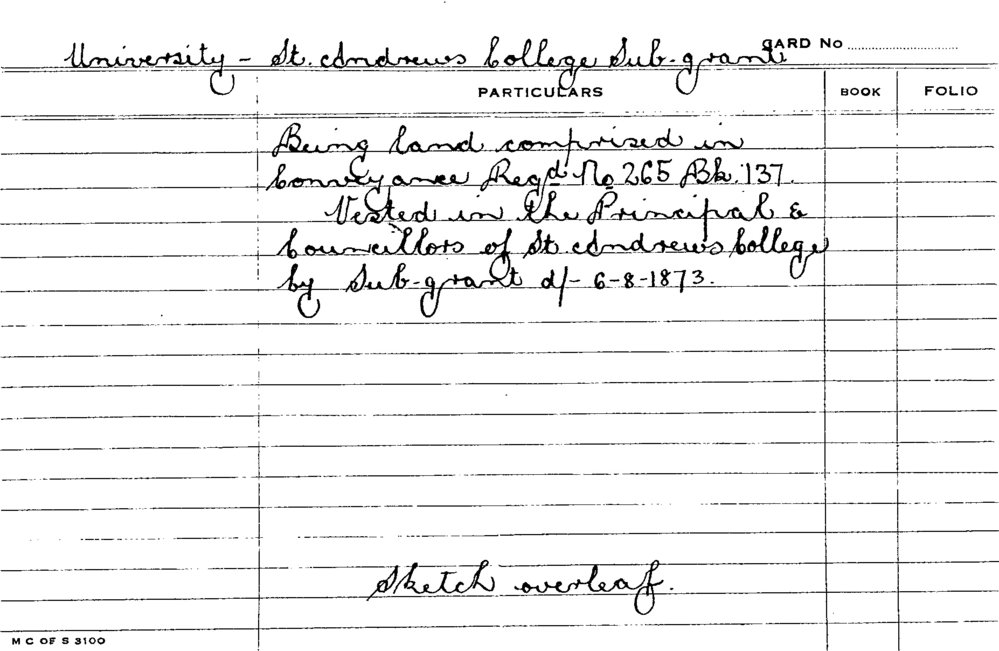 University - St. Andrews College Sub-grant
CARD No
PARTICULARS BOOK FOLIO
Being land comprised in
Conveyance Regd No 265 Bk. 137.
Vested in the Principal &
Councillors of St. Andrews College
by Sub-grant d/- 6-8-1873.
Sketch overleaf.
M C OF S 3100